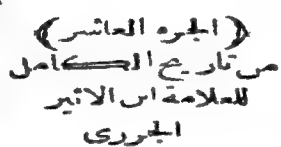 ﴿ الجزء العاشر ﴾
من تاريخ الكامل
للعلامة ابن الاثير
الجزرى